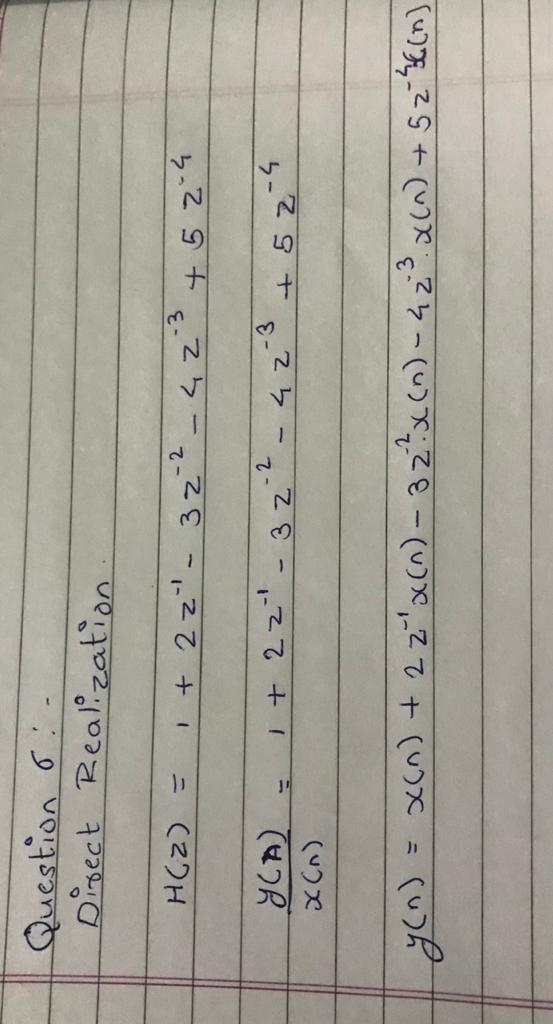 Question 6 :-
Direct Realization.
H(z) = 1 + 2z⁻¹ - 3z⁻² - 4z⁻³ + 5z⁻⁴
y(n) = 1 + 2z⁻¹ - 3z⁻² - 4z⁻³ + 5z⁻⁴
x(n)
y(n) = x(n) + 2z⁻¹x(n) - 3z⁻².x(n) - 4z⁻³.x(n) + 5z⁻⁴x(n)